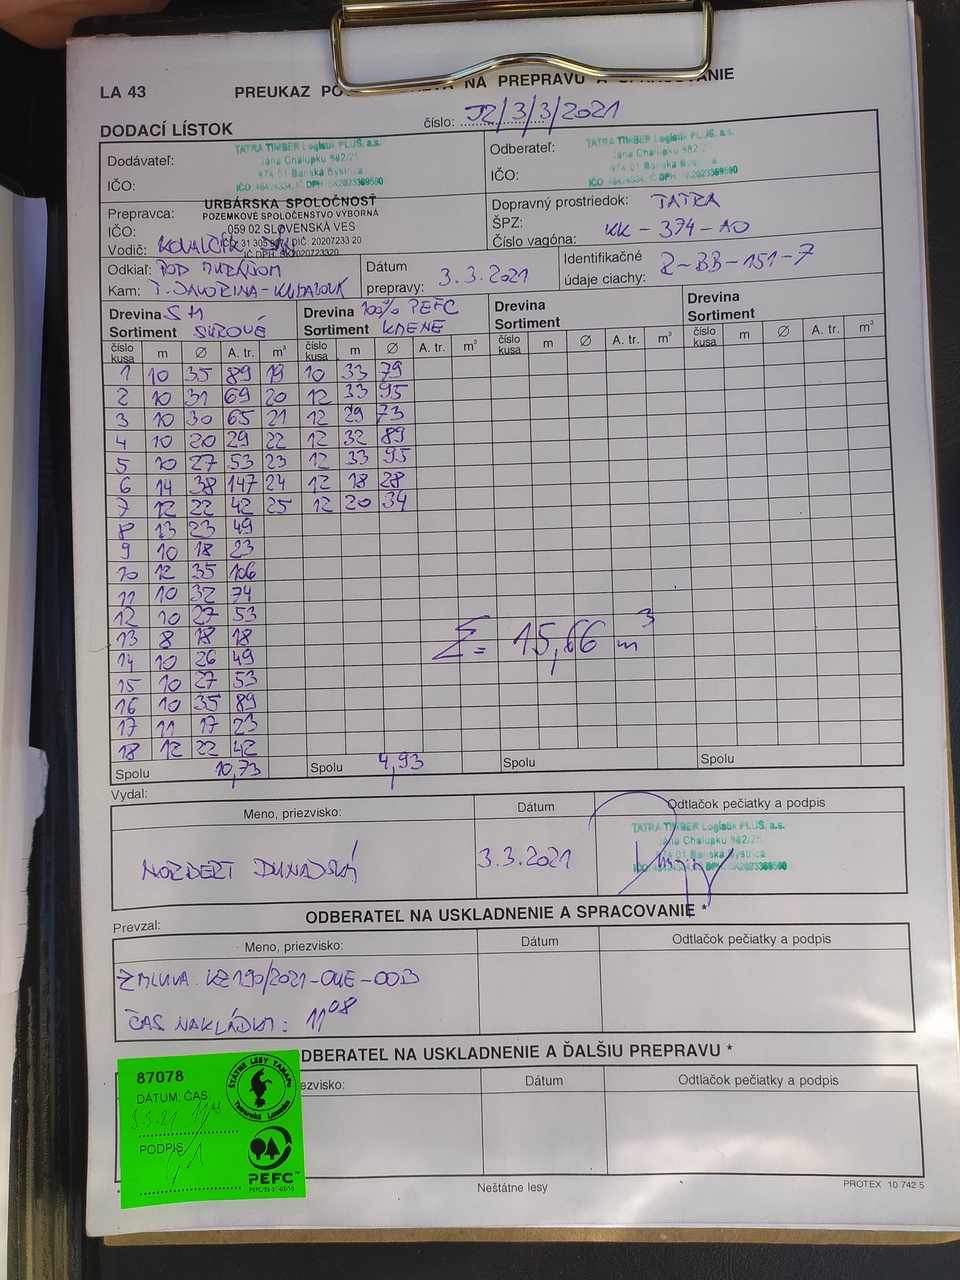 LA 43 PREUKAZ NA PREPRAVU A SPRACOVANIE
DODACÍ LÍSTOK číslo: J2/3/3/2021
Dodávateľ: TATRA TIMBER Logistik PLUS, a.s.
Jána Chalupku 982/25
974 01 Banská Bystrica
IČO: DPH: SK2023369590
Odberateľ: TATRA TIMBER Logistik PLUS, a.s.
Jána Chalupku 982/25
974 01 Banská Bystrica
IČO: DPH: SK2023369590
Prepravca: URBÁRSKA SPOLOČNOSŤ
POZEMKOVÉ SPOLOČENSTVO VÝBORNÁ
IČO: 059 02 SLOVENSKÁ VES
Vodič: KOVALČÍK
Dopravný prostriedok: TATRA
ŠPZ: KK-374-AO
Číslo vagóna:
Odkiaľ: POD MURÁŇOM
Kam: T. JAVORINA-
Dátum prepravy: 3.3.2021
Identifikačné údaje ciachy: Z-BB-151-7
Drevina SM Drevina 100% PEFC Drevina Drevina
Sortiment SUROVÉ Sortiment KMENE Sortiment Sortiment
číslo kusa m Ø A. tr. m³ číslo kusa m Ø A. tr. m³ číslo kusa m Ø A. tr. m³ číslo kusa m Ø A. tr. m³
1 10 35 89 19 10 33 79
2 10 31 69 20 12 33 95
3 10 30 65 21 12 29 73
4 10 20 29 22 12 32 89
5 10 27 53 23 12 33 95
6 14 38 147 24 12 18 28
7 12 22 42 25 12 20 34
8 13 23 49
9 10 18 23
10 12 35 106
11 10 32 74
12 10 27 53
13 8 18 18
14 10 26 49
15 10 27 53
16 10 35 89
17 11 17 23
18 12 22 42
Σ = 15,66 m³
Spolu 10,73 Spolu 4,93 Spolu Spolu
Vydal:
Meno, priezvisko: Dátum Odtlačok pečiatky a podpis
NORBERT DUNAJSKÝ 3.3.2021
TATRA TIMBER Logistik PLUS, a.s.
Jána Chalupku 982/25
974 01 Banská Bystrica
ODBERATEĽ NA USKLADNENIE A SPRACOVANIE *
Prevzal:
Meno, priezvisko: Dátum Odtlačok pečiatky a podpis
ZMLUVA: KZ190/2021-OUE-OOD
ČAS NAKLÁDKY: 11⁰⁸
ODBERATEĽ NA USKLADNENIE A ĎALŠIU PREPRAVU *
priezvisko: Dátum Odtlačok pečiatky a podpis
87078
DÁTUM, ČAS
3.3.21
PODPIS
ŠTÁTNE LESY TANAPu
Tatranská Lomnica
PEFC™
PEFC/23-21-03/10
Neštátne lesy
PROTEX 10 742 5